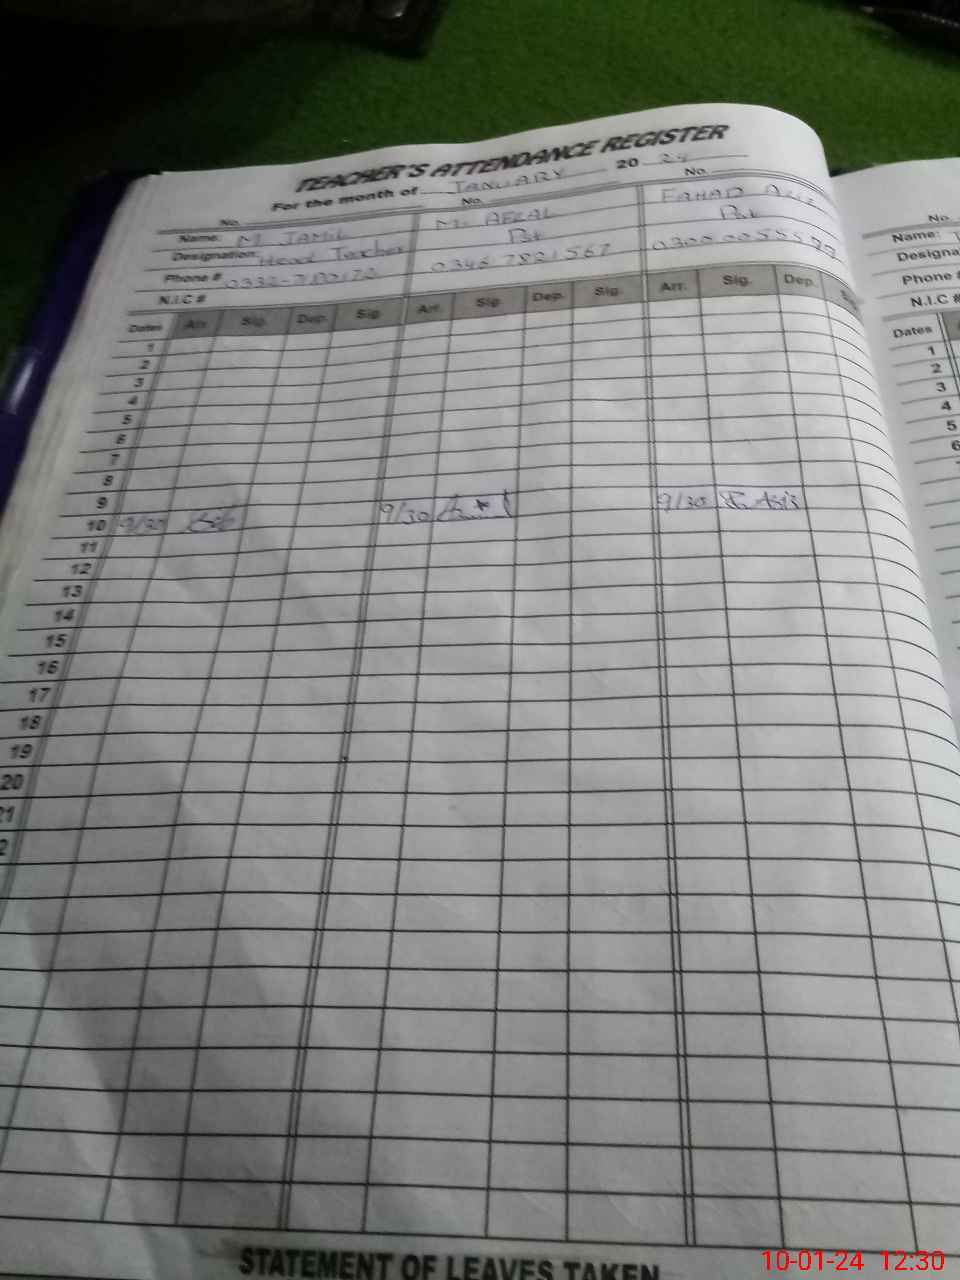 TEACHER'S ATTENDANCE REGISTER
For the month of JANUARY 20 24
No. No. No.
Name: M JAMIL M. AFZAL FAHAD Aziz
Designation Head Teacher Pst Pst
Phone # 0346 7821567
N.I.C #
Dates Arr. Sig. Dep. Sig. Arr. Sig. Dep. Sig. Arr. Sig. Dep.
1
2
3
4
5
6
7
8
9
10 9/30 9/30 9/30
11
12
13
14
15
16
17
18
19
20
21
2
STATEMENT OF LEAVES TAKEN
No.
Name:
Designa
Phone #
N.I.C #
Dates
1
2
3
4
5
6
10-01-24 12:30